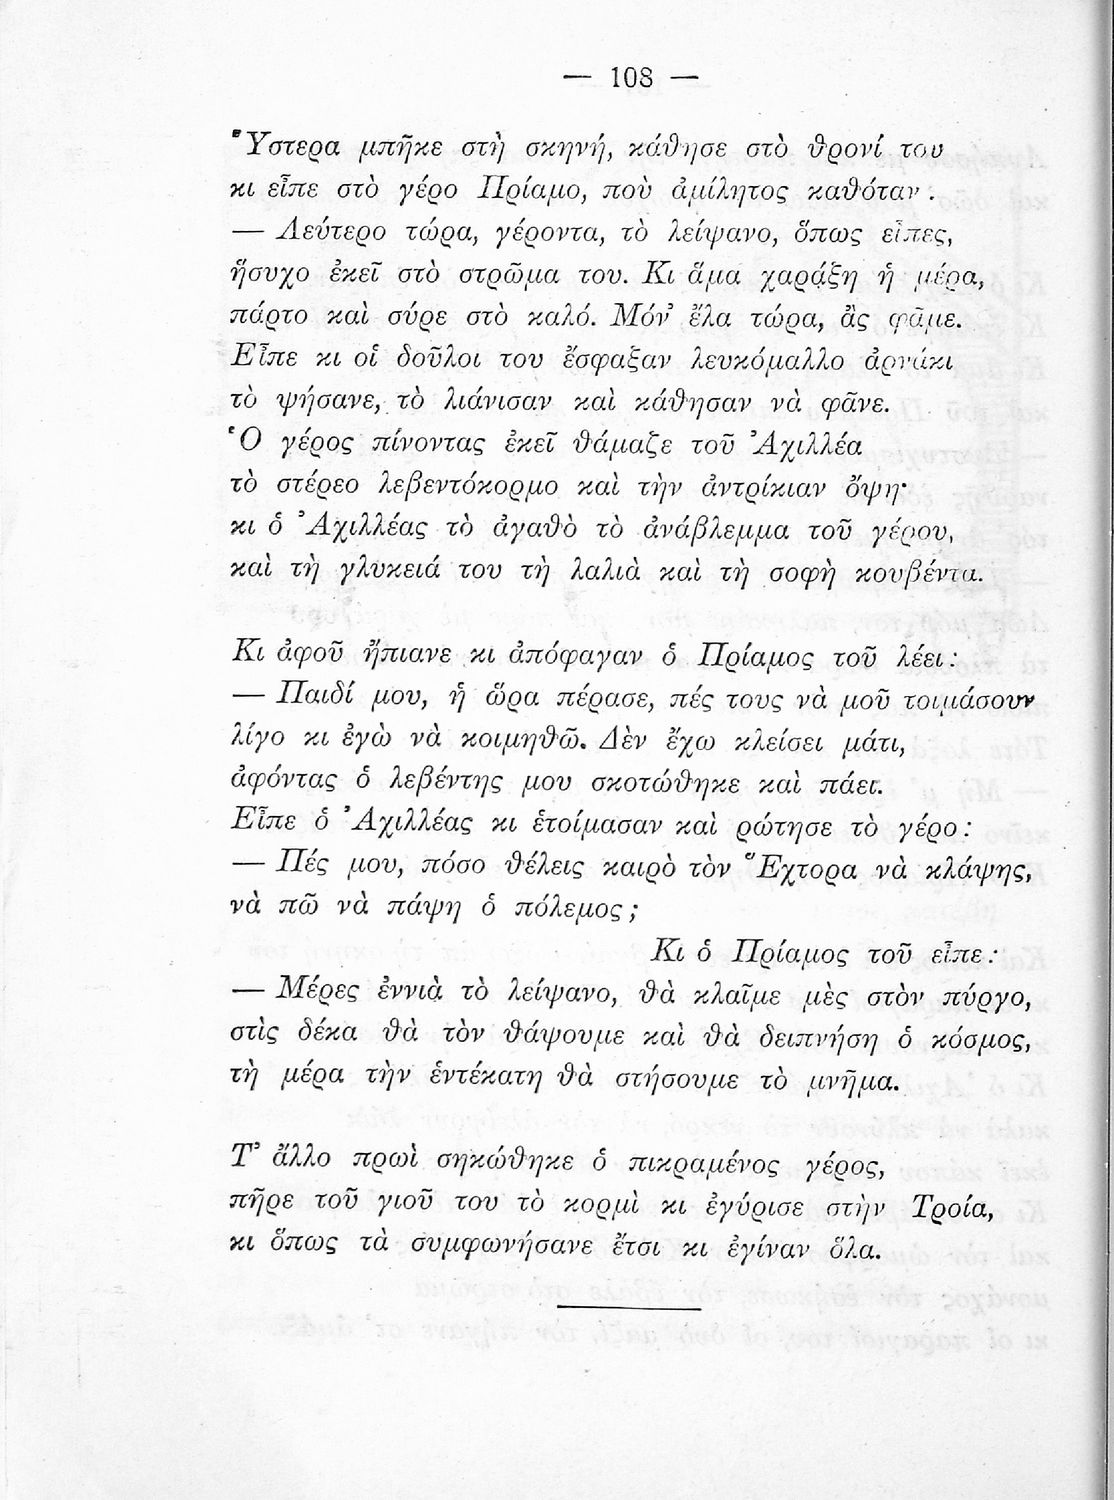 — 108 —
Ὕστερα μπῆκε στὴ σκηνή, κάθησε στὸ θρονί του
κι εἶπε στὸ γέρο Πρίαμο, ποὺ ἀμίλητος καθόταν.
— Λεύτερο τώρα, γέροντα, τὸ λείψανο, ὅπως εἶπες,
ἥσυχο ἐκεῖ στὸ στρῶμα του. Κι ἅμα χαράξη ἡ μέρα,
πάρτο καὶ σύρε στὸ καλό. Μόν' ἔλα τώρα, ἂς φᾶμε.
Εἶπε κι οἱ δοῦλοι του ἔσφαξαν λευκόμαλλο ἀρνάκι
τὸ ψήσανε, τὸ λιάνισαν καὶ κάθησαν νὰ φᾶνε.
Ὁ γέρος πίνοντας ἐκεῖ θάμαζε τοῦ Ἀχιλλέα
τὸ στέρεο λεβεντόκορμο καὶ τὴν ἀντρίκιαν ὄψη·
κι ὁ Ἀχιλλέας τὸ ἀγαθὸ τὸ ἀνάβλεμμα τοῦ γέρου,
καὶ τὴ γλυκειά του τὴ λαλιὰ καὶ τὴ σοφὴ κουβέντα.
Κι ἀφοῦ ἤπιανε κι ἀπόφαγαν ὁ Πρίαμος τοῦ λέει:
— Παιδί μου, ἡ ὥρα πέρασε, πές τους νὰ μοῦ τοιμάσουν
λίγο κι ἐγὼ νὰ κοιμηθῶ. Δὲν ἔχω κλείσει μάτι,
ἀφόντας ὁ λεβέντης μου σκοτώθηκε καὶ πάει.
Εἶπε ὁ Ἀχιλλέας κι ἑτοίμασαν καὶ ρώτησε τὸ γέρο:
— Πές μου, πόσο θέλεις καιρὸ τὸν Ἕχτορα νὰ κλάψης,
νὰ πῶ νὰ πάψη ὁ πόλεμος;
Κι ὁ Πρίαμος τοῦ εἶπε:
— Μέρες ἐννιὰ τὸ λείψανο, θὰ κλαῖμε μὲς στὸν πύργο,
στὶς δέκα θὰ τὸν θάψουμε καὶ θὰ δειπνήση ὁ κόσμος,
τὴ μέρα τὴν ἑντέκατη θὰ στήσουμε τὸ μνῆμα.
Τ' ἄλλο πρωὶ σηκώθηκε ὁ πικραμένος γέρος,
πῆρε τοῦ γιοῦ του τὸ κορμὶ κι ἐγύρισε στὴν Τροία,
κι ὅπως τὰ συμφωνήσανε ἔτσι κι ἐγίναν ὅλα.